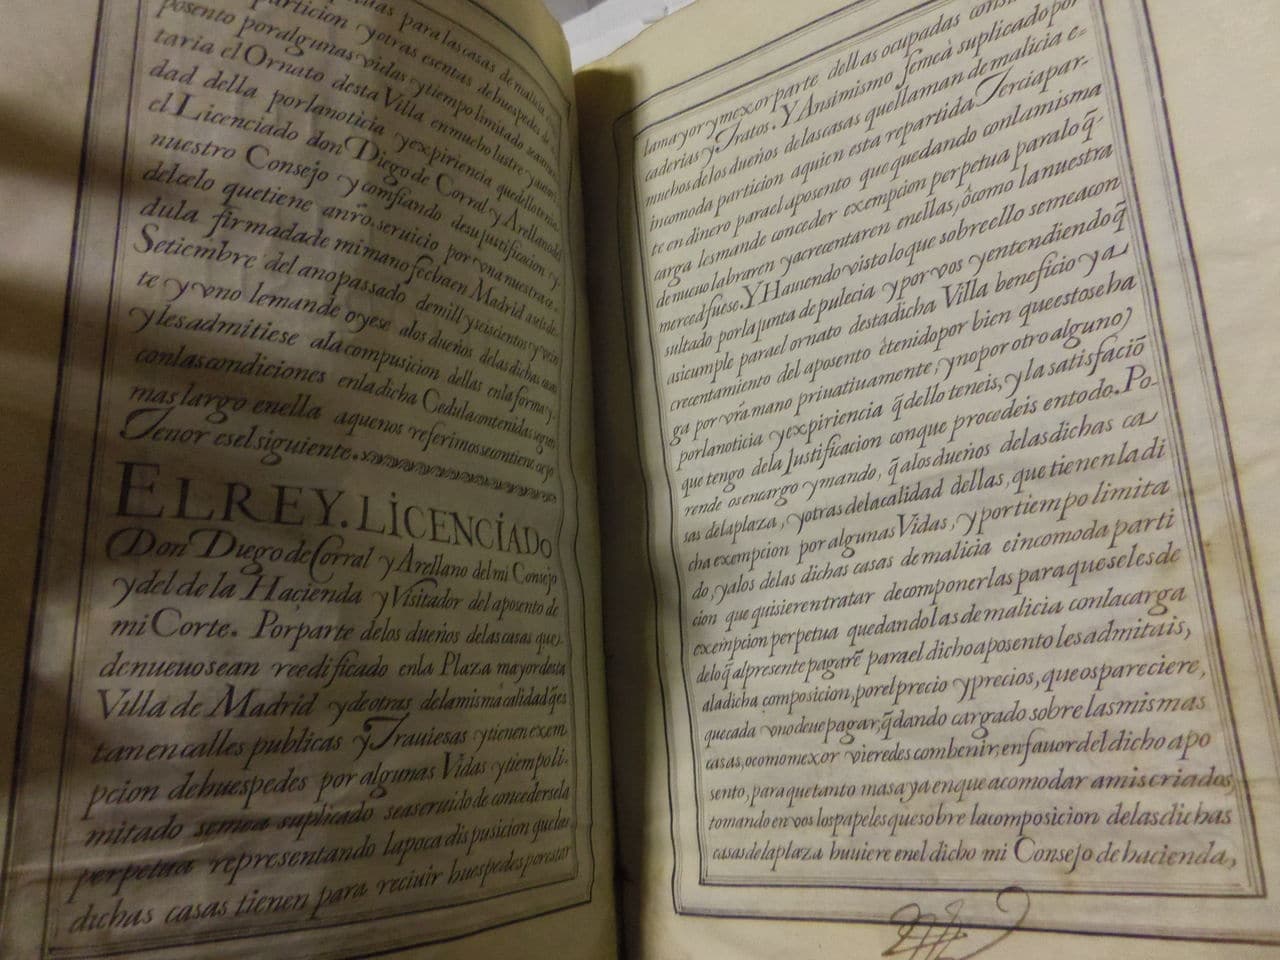 para las casas de malicia
particion y otras esentas de huespedes de
posento por algunas vidas y tiempo limitado
taria el Ornato desta Villa en mucho lustre y autori
dad della por la noticia y expiriencia que dello tiene
el Licenciado don Diego de Corral y Arellano del
nuestro Consejo y confiando de su justificacion y
del celo que tiene a nr̃o. seruicio por vna nuestra ce-
dula firmada de mi mano fecha en Madrid a seis de
Setiembre del ano passado de mill y seiscientos y vein
te y vno le mande oyese a los dueños de las dichas casas
y les admitiese a la compusicion dellas en la forma y
con las condiciones en la dicha Cedula contenidas segun
mas largo en ella a que nos referimos se contiene cuyo
Tenor es el siguiente.
EL REY. LiCENCiADO
Don Diego de Corral y Arellano del mi Consejo
y del de la Haçienda y Visitador del aposento de
mi Corte. Por parte de los dueños de las casas que
de nueuo se an reedificado en la Plaza mayor desta
Villa de Madrid y de otras de la misma calidad q̃ es
tan en calles publicas y Trauiesas y tienen exem
pcion de huespedes por algunas Vidas y tiempo li-
mitado se me a suplicado sea seruido de concedersela
perpetua representando la poca disposicion que las
dichas casas tienen para reciuir huespedes por estar
la mayor y mexor parte dellas ocupadas con
caderias y Tratos. Y Ansimismo se me à suplicado por
muchos de los dueños de las casas que llaman de malicia e-
incomoda particion a quien esta repartida Tercia par-
te en dinero para el aposento que quedando con la misma
carga les mande conceder exempcion perpetua para lo q̃-
de nueuo labraren y acrecentaren en ellas, ò como la nuestra
merced fuese. Y Hauiendo visto lo que sobre ello se me a con
sultado por la junta de pulecia y por vos y entendiendo q̃
asi cumple para el ornato desta dicha Villa beneficio y a
crecentamiento del aposento è tenido por bien que esto se ha
ga por vr̃a mano priuatiuamente, y no por otro alguno)
por la noticia y expiriencia q̃ dello teneis, y la satisfaciõ
que tengo de la Justificacion con que procedeis en todo. Po-
rende os encargo y mando, q̃ a los dueños de las dichas ca
sas de la plaza, y otras de la calidad dellas, que tienen la di
cha exempcion por algunas Vidas, y por tiempo limita
do, y a los de las dichas casas de malicia e incomoda parti
cion que quisieren tratar de componerlas para que se les de
exempcion perpetua quedando las de malicia con la carga
de lo q̃ al presente pagarẽ para el dicho aposento les admitais,
a la dicha composicion, por el precio y precios, que os pareciere,
que cada vno deue pagar, q̃dando cargado sobre las mismas
casas, o como mexor vieredes combenir, en fauor del dicho apo
sento, para que tanto mas aya en que acomodar a mis criados,
tomando en vos los papeles que sobre la composicion de las dichas
casas de la plaza huuiere en el dicho mi Consejo de hacienda,